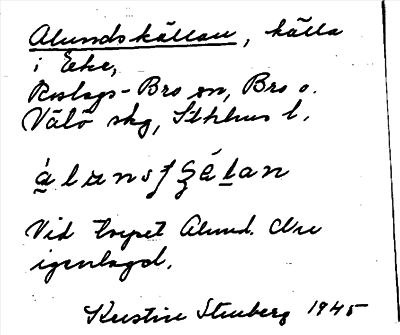 Alundskällan, källa
i Eke,
Roslags-Bro sn, Bro o.
Välö skg, Sthlms l.
Vid torpet Alund. Nu
igenlagd.
Kerstin Stenberg 1945